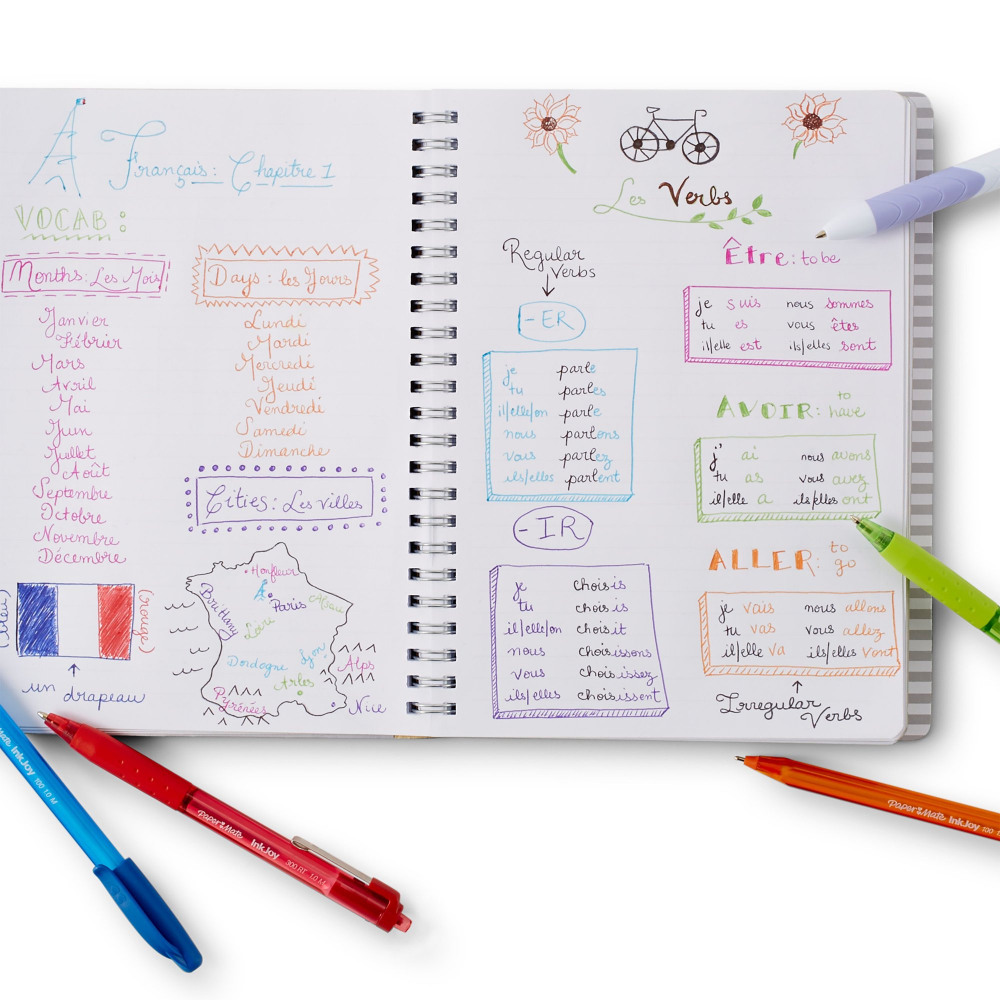 Français: Chapitre 1
VOCAB:
Months: Les Mois
Janvier
Fébrier
Mars
Avril
Mai
Juin
Juillet
Août
Septembre
Octobre
Novembre
Décembre
Days: les Jours
Lundi
Mardi
Mercredi
Jeudi
Vendredi
Samedi
Dimanche
Cities: Les Villes
(bleu)
(rouge)
un drapeau
Honfleur
Paris
Alsace
Brittany
Loire
Dordogne
Lyon
Alps
Arles
Pyrénées
Nice
Les Verbs
Regular
Verbs
-ER
je parle
tu parles
il/elle/on parle
nous parlons
vous parlez
ils/elles parlent
-IR
je choisis
tu choisis
il/elle/on choisit
nous choisissons
vous choisissez
ils/elles choisissent
Être: to be
je suis nous sommes
tu es vous êtes
il/elle est ils/elles sont
AVOIR: to have
j' ai nous avons
tu as vous avez
il/elle a ils/elles ont
ALLER: to go
je vais nous allons
tu vas vous allez
il/elle va ils/elles vont
Irregular
Verbs
Mate InkJoy 100 1.0 M
Paper Mate InkJoy 300 RT 1.0 M
Paper Mate InkJoy 100